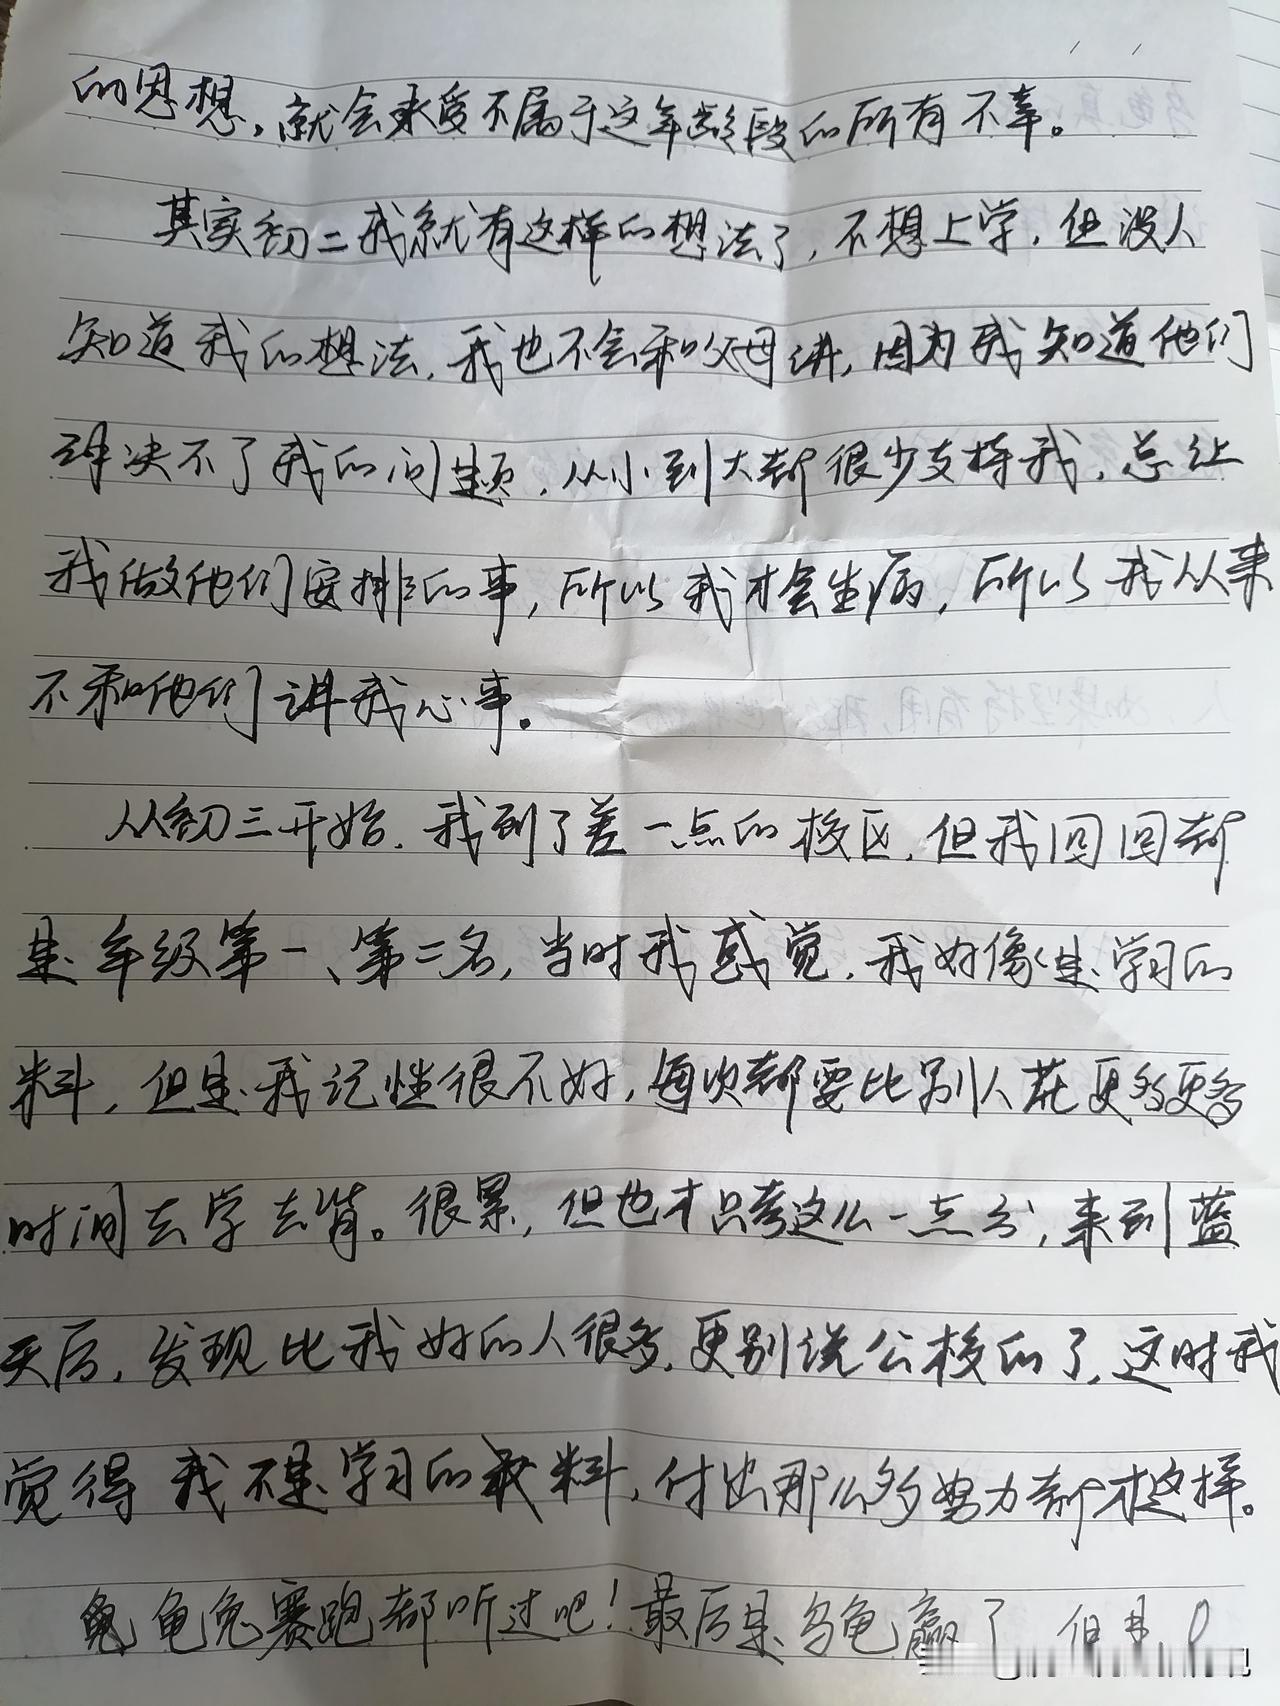 的思想，就会承受不属于这年龄段的所有不幸。
其实初二我就有这样的想法了，不想上学，但没人
知道我的想法，我也不会和父母讲，因为我知道他们
解决不了我的问题，从小到大都很少支持我，总让
我做他们安排的事，所以我才会生病，所以我从来
不和他们讲我心事。
从初三开始，我到了差一点的校区，但我回回都
是年级第一、第二名，当时我感觉，我好像是学习的
料，但是我记性很不好，每次都要比别人花更多更多
时间去学去背。很累，但也才只考这么一点分，来到蓝
天后，发现比我好的人很多，更别说公校的了，这时我
觉得我不是学习的料，付出那么多努力都才这样。
龟兔赛跑都听过吧！最后是乌龟赢了 但是